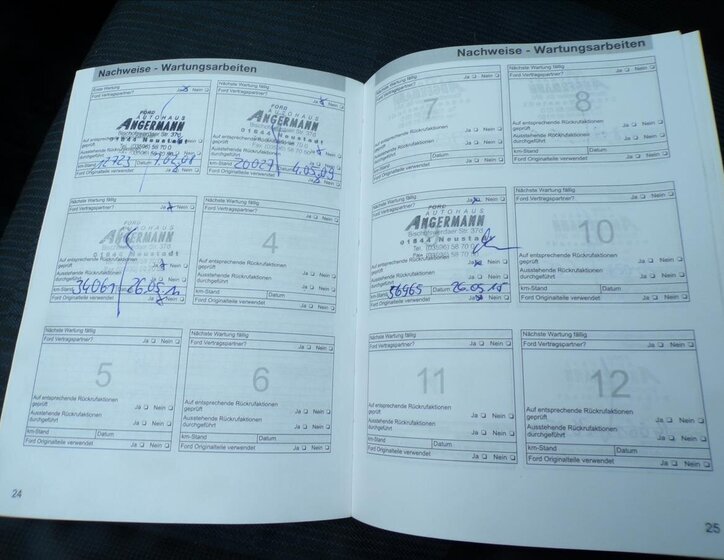 Nachweise - Wartungsarbeiten
Erste Wartung
Ford Vertragspartner? Ja Nein
FORD
AUTOHAUS
ANGERMANN
Bischofswerdaer Str. 37a
01844 Neustadt
Tel. (03596) 58 70 0
Auf entsprechende Rückrufaktionen
geprüft
Ausstehende Rückrufaktionen
durchgeführt
km-Stand Datum
Ford Originalteile verwendet Ja Nein
Nächste Wartung fällig
Ford Vertragspartner? Ja Nein
FORD
AUTOHAUS
ANGERMANN
Bischofswerdaer Str. 37a
01844 Neustadt
Tel. (03596) 58 70 0
Auf entsprechende Rückrufaktionen
geprüft
Ausstehende Rückrufaktionen
durchgeführt
km-Stand 20027 Datum 4.05.09
Ford Originalteile verwendet Ja Nein
Ford Vertragspartner? Ja Nein
FORD
AUTOHAUS
ANGERMANN
Bischofswerdaer Str. 37a
01844 Neustadt
Auf entsprechende Rückrufaktionen
geprüft
Ausstehende Rückrufaktionen
durchgeführt
km-Stand 34061 Datum
Ford Originalteile verwendet Ja Nein
Nächste Wartung fällig
Ford Vertragspartner? Ja Nein
4
Auf entsprechende Rückrufaktionen
geprüft Ja Nein
Ausstehende Rückrufaktionen
durchgeführt Ja Nein
km-Stand Datum
Ford Originalteile verwendet Ja Nein
Nächste Wartung fällig
Ford Vertragspartner? Ja Nein
5
Auf entsprechende Rückrufaktionen
geprüft Ja Nein
Ausstehende Rückrufaktionen
durchgeführt Ja Nein
km-Stand Datum
Ford Originalteile verwendet Ja Nein
Nächste Wartung fällig
Ford Vertragspartner? Ja Nein
6
Auf entsprechende Rückrufaktionen
geprüft Ja Nein
Ausstehende Rückrufaktionen
durchgeführt Ja Nein
km-Stand Datum
Ford Originalteile verwendet Ja Nein
24
Nachweise - Wartungsarbeiten
Nächste Wartung fällig
Ford Vertragspartner? Ja Nein
7
Auf entsprechende Rückrufaktionen
geprüft Ja Nein
Ausstehende Rückrufaktionen
durchgeführt Ja Nein
km-Stand Datum
Ford Originalteile verwendet Ja Nein
Nächste Wartung fällig
Ford Vertragspartner? Ja Nein
8
Auf entsprechende Rückrufaktionen
geprüft Ja Nein
Ausstehende Rückrufaktionen
durchgeführt Ja Nein
km-Stand Datum
Ford Originalteile verwendet Ja Nein
Ja Nein
FORD
AUTOHAUS
ANGERMANN
Bischofswerdaer Str. 37a
01844 Neustadt
Tel. (03596) 58 70 0
Auf entsprechende Rückrufaktionen
geprüft
Ausstehende Rückrufaktionen
durchgeführt
km-Stand 56965 Datum 26.05.15
Ford Originalteile verwendet Ja Nein
Nächste Wartung fällig
Ford Vertragspartner? Ja Nein
10
Auf entsprechende Rückrufaktionen
geprüft Ja Nein
Ausstehende Rückrufaktionen
durchgeführt Ja Nein
km-Stand Datum
Ford Originalteile verwendet Ja Nein
Nächste Wartung fällig
Ford Vertragspartner? Ja Nein
11
Auf entsprechende Rückrufaktionen
geprüft Ja Nein
Ausstehende Rückrufaktionen
durchgeführt Ja Nein
km-Stand Datum
Ford Originalteile verwendet Ja Nein
Nächste Wartung fällig
Ford Vertragspartner? Ja Nein
12
Auf entsprechende Rückrufaktionen
geprüft Ja Nein
Ausstehende Rückrufaktionen
durchgeführt Ja Nein
km-Stand Datum
Ford Originalteile verwendet Ja Nein
25